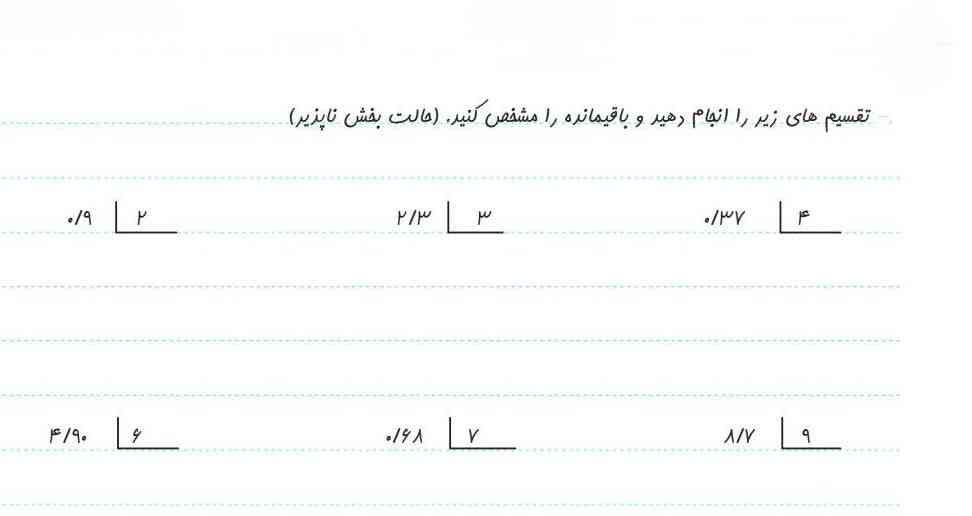 - تقسیم های زیر را انجام دهید و باقیمانده را مشخص کنید. (حالت بخش ناپزیر)
۰/۳۷ ۴ ۲/۳ ۳ ۰/۹ ۲
۸/۷ ۹ ۰/۶۸ ۷ ۴/۹۰ ۶